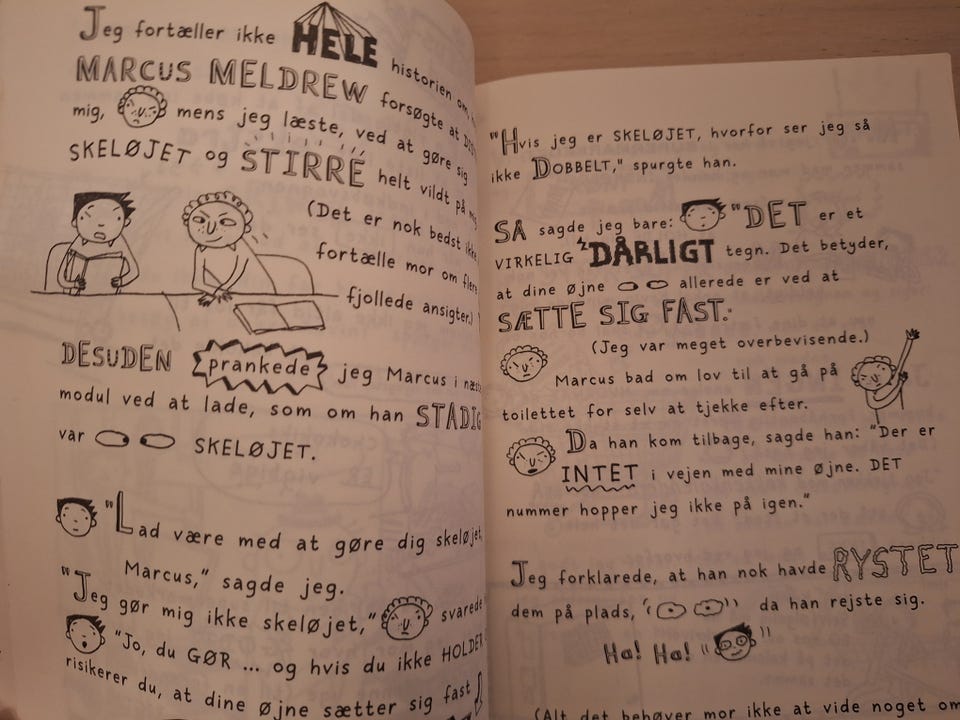 Jeg fortæller ikke HELE
historien om,
MARCUS MELDREW forsøgte at
mig, mens jeg læste, ved at gøre sig
SKELØJET og STIRRE helt vildt på mig
(Det er nok bedst ikke
fortælle mor om flere
fjollede ansigter.)
DESUDEN prankede jeg Marcus i
modul ved at lade, som om han STADIG
var SKELØJET.
"Lad være med at gøre dig skeløjet,
Marcus," sagde jeg.
"Jeg gør mig ikke skeløjet," svarede
"Jo, du GØR ... og hvis du ikke HOLDER
risikerer du, at dine øjne sætter sig fast
"Hvis jeg er SKELØJET, hvorfor ser jeg så
ikke DOBBELT," spurgte han.
SÅ sagde jeg bare: "DET er et
VIRKELIG DÅRLIGT tegn. Det betyder,
at dine øjne allerede er ved at
SÆTTE SIG FAST."
(Jeg var meget overbevisende.)
Marcus bad om lov til at gå på
toilettet for selv at tjekke efter.
Da han kom tilbage, sagde han: "Der er
INTET i vejen med mine øjne. DET
nummer hopper jeg ikke på igen."
Jeg forklarede, at han nok havde RYSTET
dem på plads, da han rejste sig.
Ha! Ha!
(Alt det behøver mor ikke at vide noget om